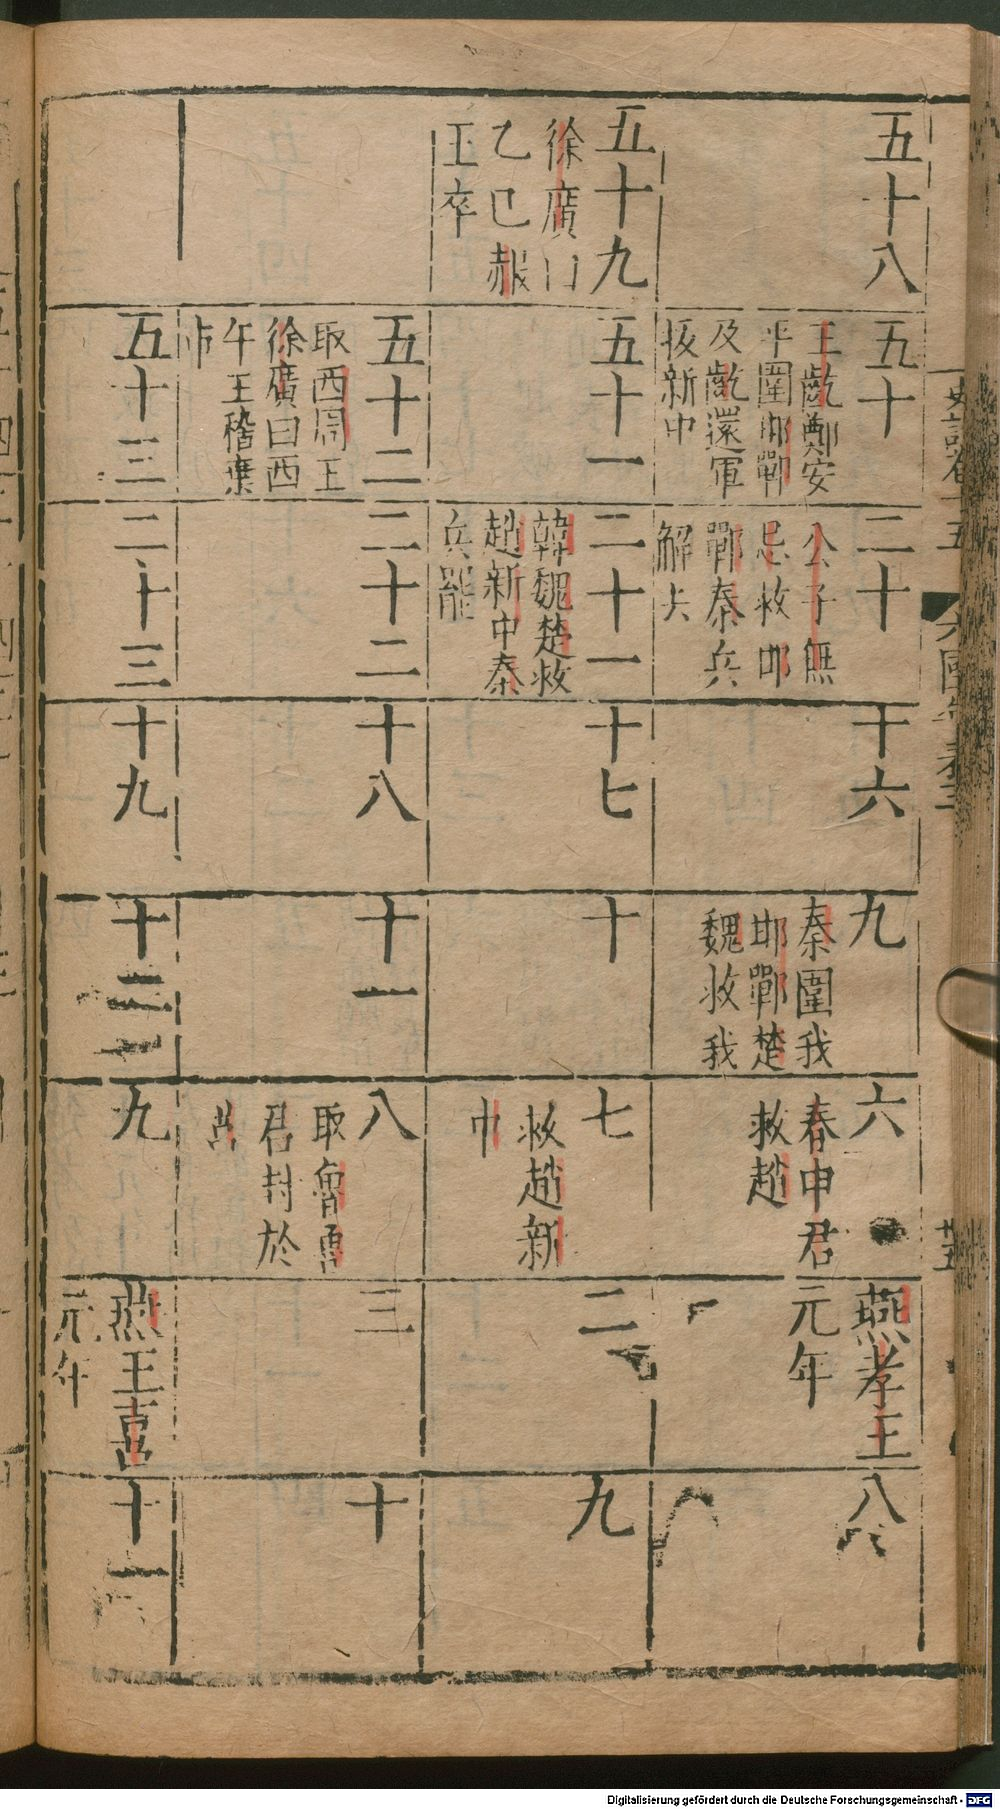 五十八
五十
王齕鄭安
平圍邯鄲
及齕還軍
拔新中
二十
公子無
忌救邯
鄲秦兵
解去
十六
九
秦圍我
邯鄲楚
魏救我
六
春申君
救趙
燕孝王
元年
八
五十九
徐廣曰
乙巳赧
王卒
五十一
二十一
韓魏楚救
趙新中秦
兵罷
十七
十
七
救趙新
中
二
九
五十二
取西周王
徐廣曰西
午王稽棄
市
二十二
十八
十一
八
取魯魯
君封於
莒
三
十
五十三
二十三
十九
十二
九
燕王喜
元年
十一
Digitalisierung gefördert durch die Deutsche Forschungsgemeinschaft - DFG